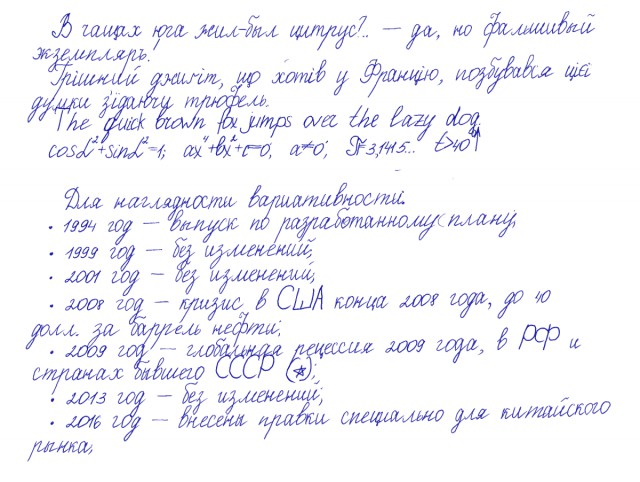 В чащах юга жил-был цитрус?.. — да, но фальшивый
экземпляръ.
Грішний джиґіт, що хотів у Францію, позбувався цієї
думки з'їдаючи трюфель.
The quick brown fox jumps over the lazy dog.
cosα²+sinα²=1; ax⁴+bx²+c=0, a≠0; π=3,1415... t>40
Для наглядности вариативности.
• 1994 год — выпуск по разработанному плану;
• 1999 год — без изменений;
• 2001 год — без изменений;
• 2008 год — кризис в США конца 2008 года, до 40
долл. за баррель нефти;
• 2009 год — глобальная рецессия 2009 года, в РФ и
странах бывшего СССР (☆);
• 2013 год — без изменений;
• 2016 год — внесены правки специально для китайского
рынка;